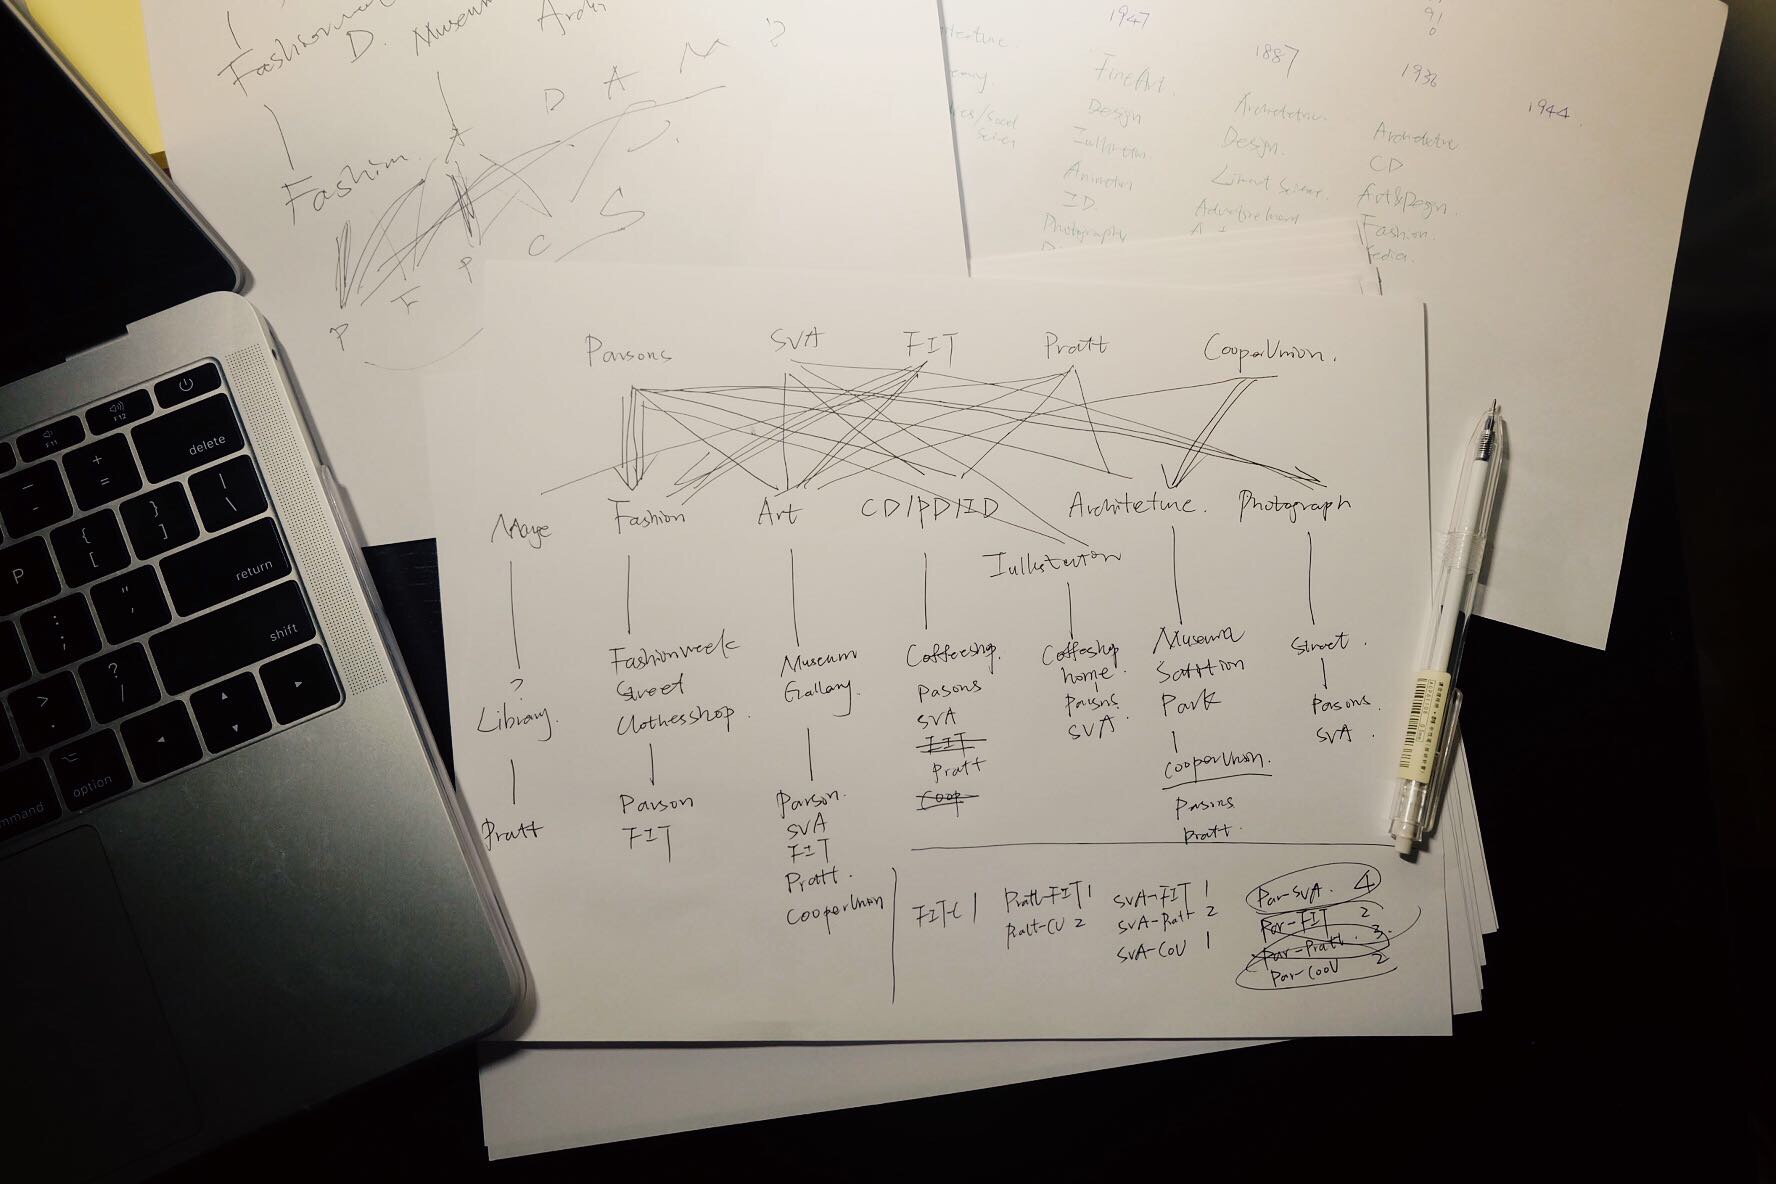 Fashionw
D. Museum Archi
D A M ?
A
Fashion.
J.
S
C
P
F
P
1947
1887
1936
1944
Fine Art.
Design
Animation
ID.
Photography
Architecture
Design.
Architecture
CD
Art&Design.
Fashion.
Parsons SVA FIT Pratt CooperUnion.
Fashion Art CD/PD/ID Architeture. Photograph
Iullustration
?
Library.
Pratt
Fashionweek
Street
Clothesshop.
Parson
FIT
Museum
Gallary.
Parson.
SVA
FIT
Pratt.
CooperUnion
Coffeeshop.
Pasons
SVA
FIT
Pratt
Coop
Coffeshop
home.
Parsons
SVA.
Museum
Park
CooperUnion.
Parsons
Pratt.
Street.
Parsons.
SVA.
FIT-C 1
Pratt-FIT 1
Pratt-CU 2
SVA-FIT 1
SVA-Pratt 2
SVA-CoU 1
Par-SVA. 4
Par-FIT 2
Par-Pratt. 3.
Par-CooU 2
F11
F12
delete
+
=
-
}
]
{
[
|
\
return
P
:
;
"
'
shift
>
.
?
/
option
command